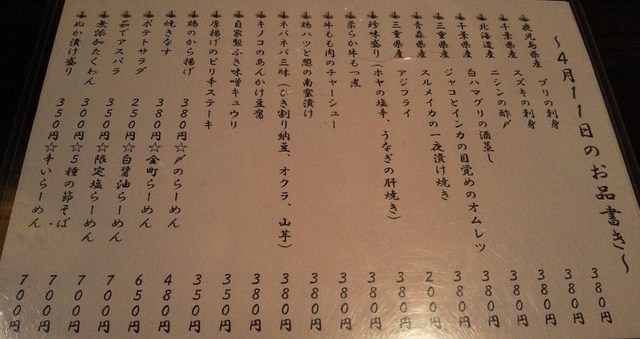 ～4月11日のお品書き～
鹿児島県産 ブリの刺身 380円
千葉県産 スズキの刺身 380円
北海道産 ニシンの酢〆 380円
千葉県産 白ハマグリの酒蒸し 380円
三重県産 ジャコとインカの目覚めのオムレツ 380円
青森県産 スルメイカの一夜漬け焼き 380円
三重県産 アジフライ 200円
珍味盛り(ホヤの塩辛、うなぎの肝焼き) 380円
柔らか牛もつ煮 380円
牛もも肉のチャーシュー 380円
鶏ハツと葱の南蛮漬け 380円
ネバネバ三昧(ひき割り納豆、オクラ、山芋) 380円
キノコのあんかけ豆腐 380円
自家製ふき味噌キュウリ 350円
厚揚げのピリ辛ステーキ 350円
鶏のから揚げ 380円☆〆のらーめん 480円
焼きなす 380円☆金町らーめん 650円
ポテトサラダ 250円☆白醤油らーめん 700円
茹でアスパラ 350円☆限定塩らーめん 700円
無添加たくわん 300円☆5種の節そば 700円
ぬか漬け盛り 350円☆辛いらーめん 700円